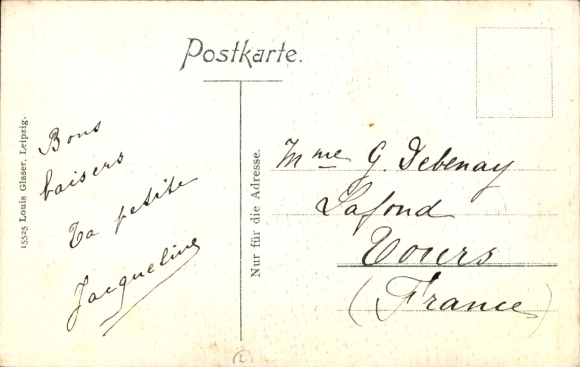 Postkarte.
15525 Louis Glaser, Leipzig.
Bons
baisers
Ta petite
Jacqueline
Nur für die Adresse.
Mme G. Debenay
Lafond
Tours
(France)